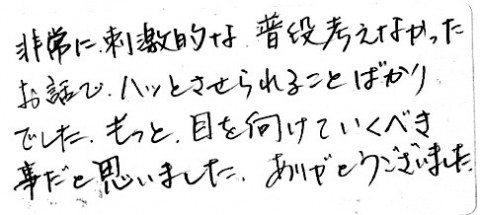 非常に、刺激的な 普段考えなかった
お話で、ハッとさせられることばかり
でした、もっと、目を向けていくべき
事だと思いました、ありがとうございました。